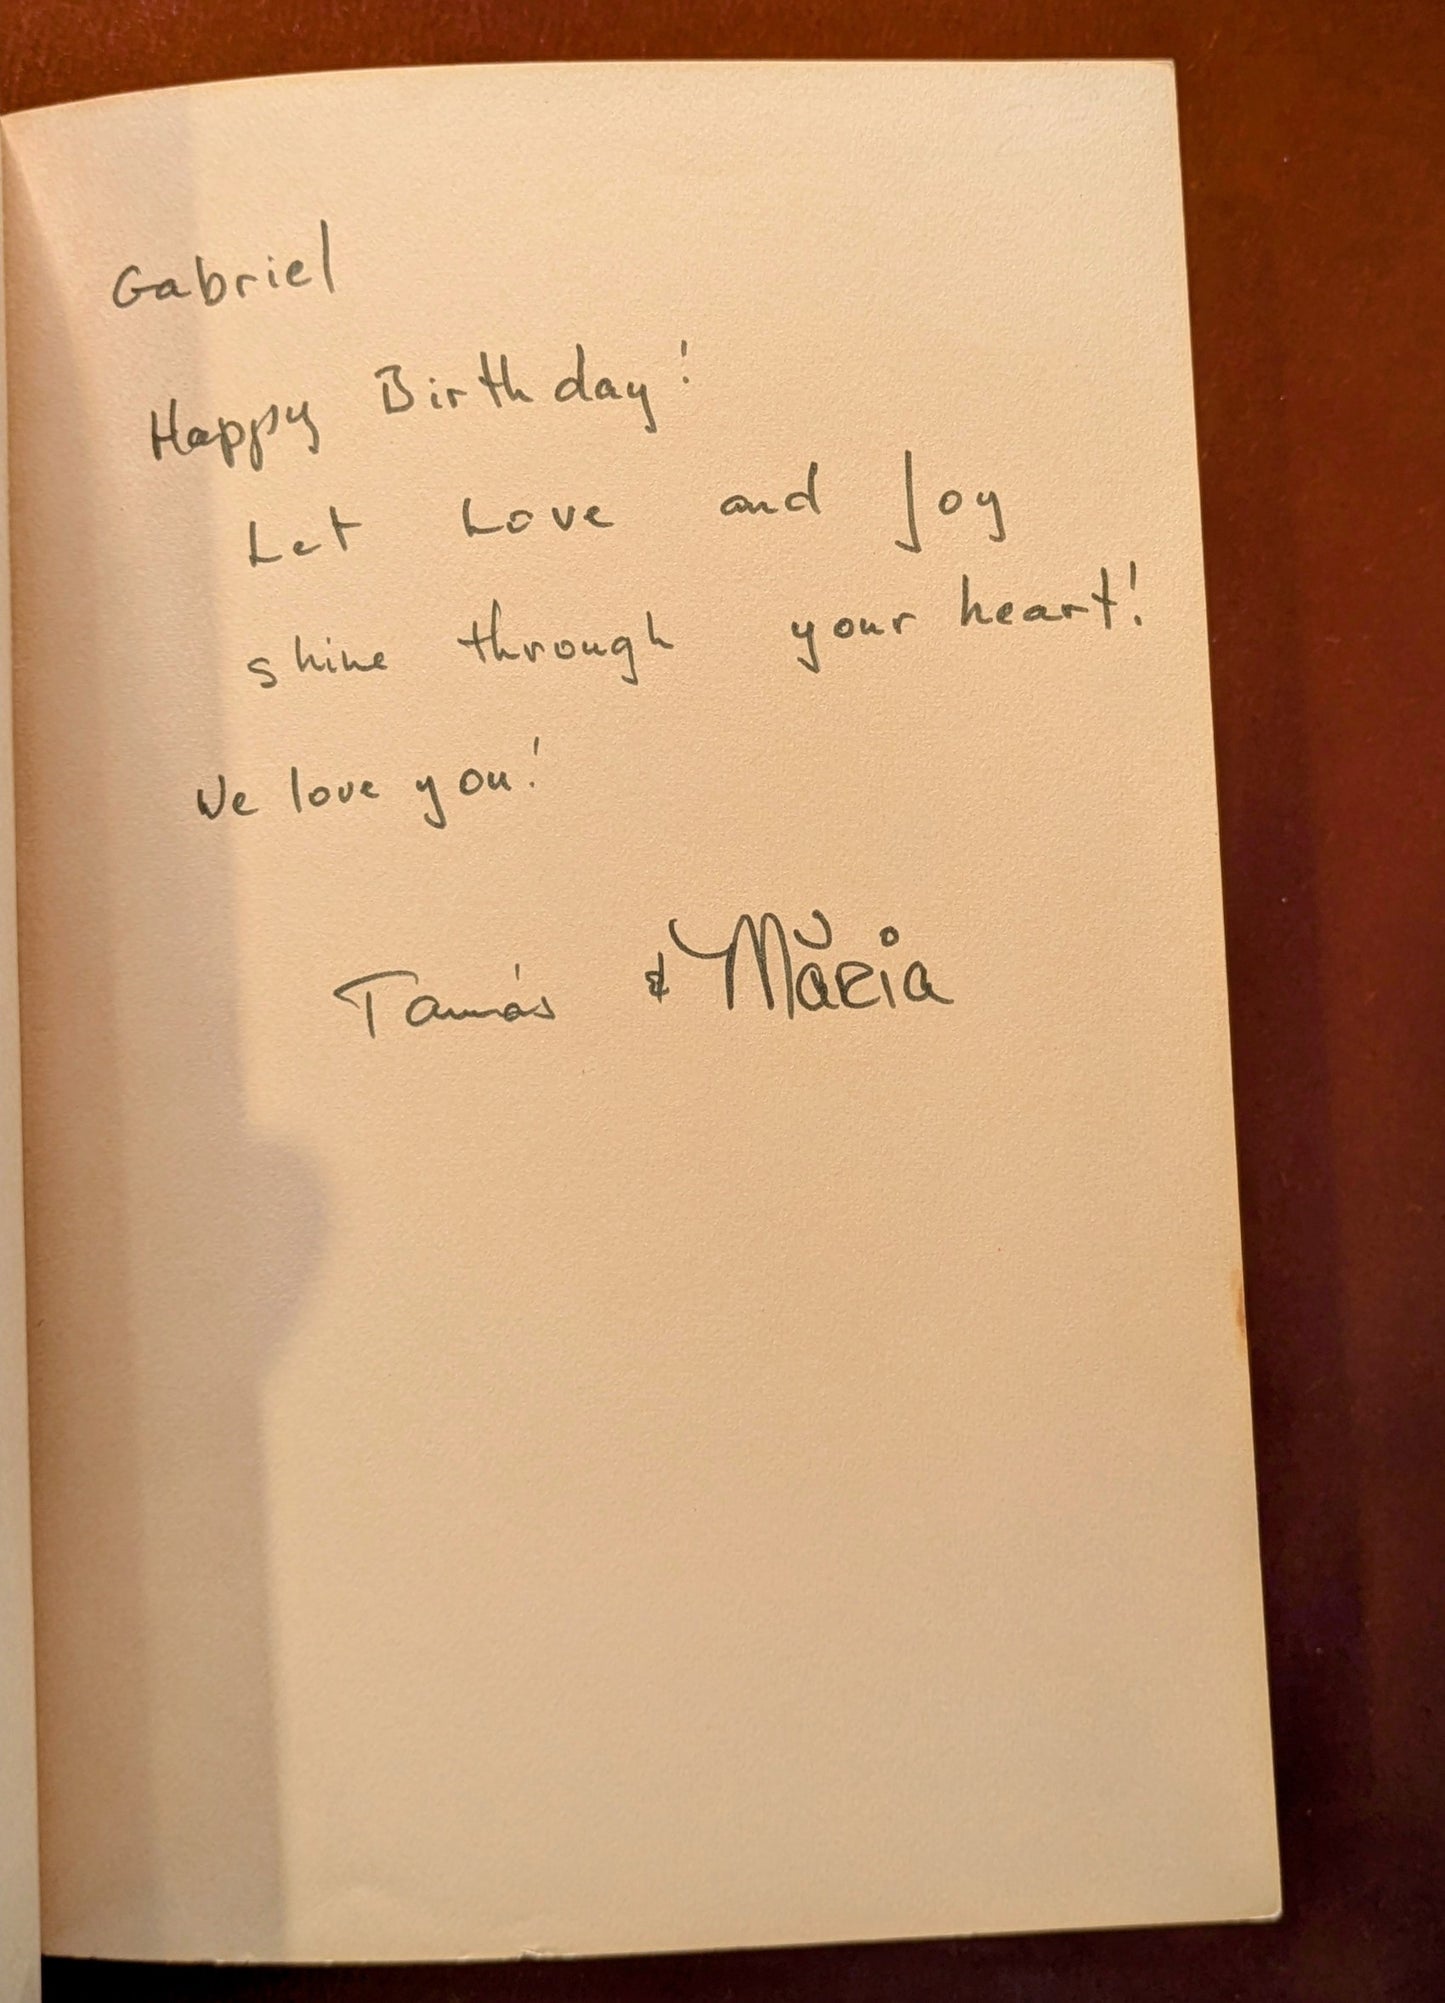 Gabriel
Happy Birthday!
Let Love and Joy
shine through your heart!
We love you!
Tamás & Măria